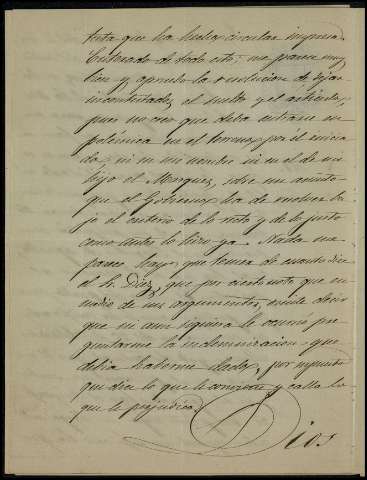 carta que ha hecho circular impresa.
Enterado de todo esto, me parece muy
bien y apruebo la resolucion de dejar
incontestados el suelto y el artículo,
pues no creo que deba entrarse en
polémica en el terreno, por él inicia-
do, ni en mi nombre ni en el de mi
hijo el Marques, sobre un asunto
que el Gobierno ha de resolver ba-
jo el criterio de lo recto y de lo justo
como antes lo hizo ya. Nada me
parece bajo, que temer de cuanto dice
el Sr. Diaz, que por cierto noto que en
medio de sus argumentos, omite decir
que ni aun siquiera le ocurrió pre-
guntarme la indemnizacion que
debia haberme dado, por supuesto
que dice lo que le conviene y calla lo
que le perjudica.
Dios